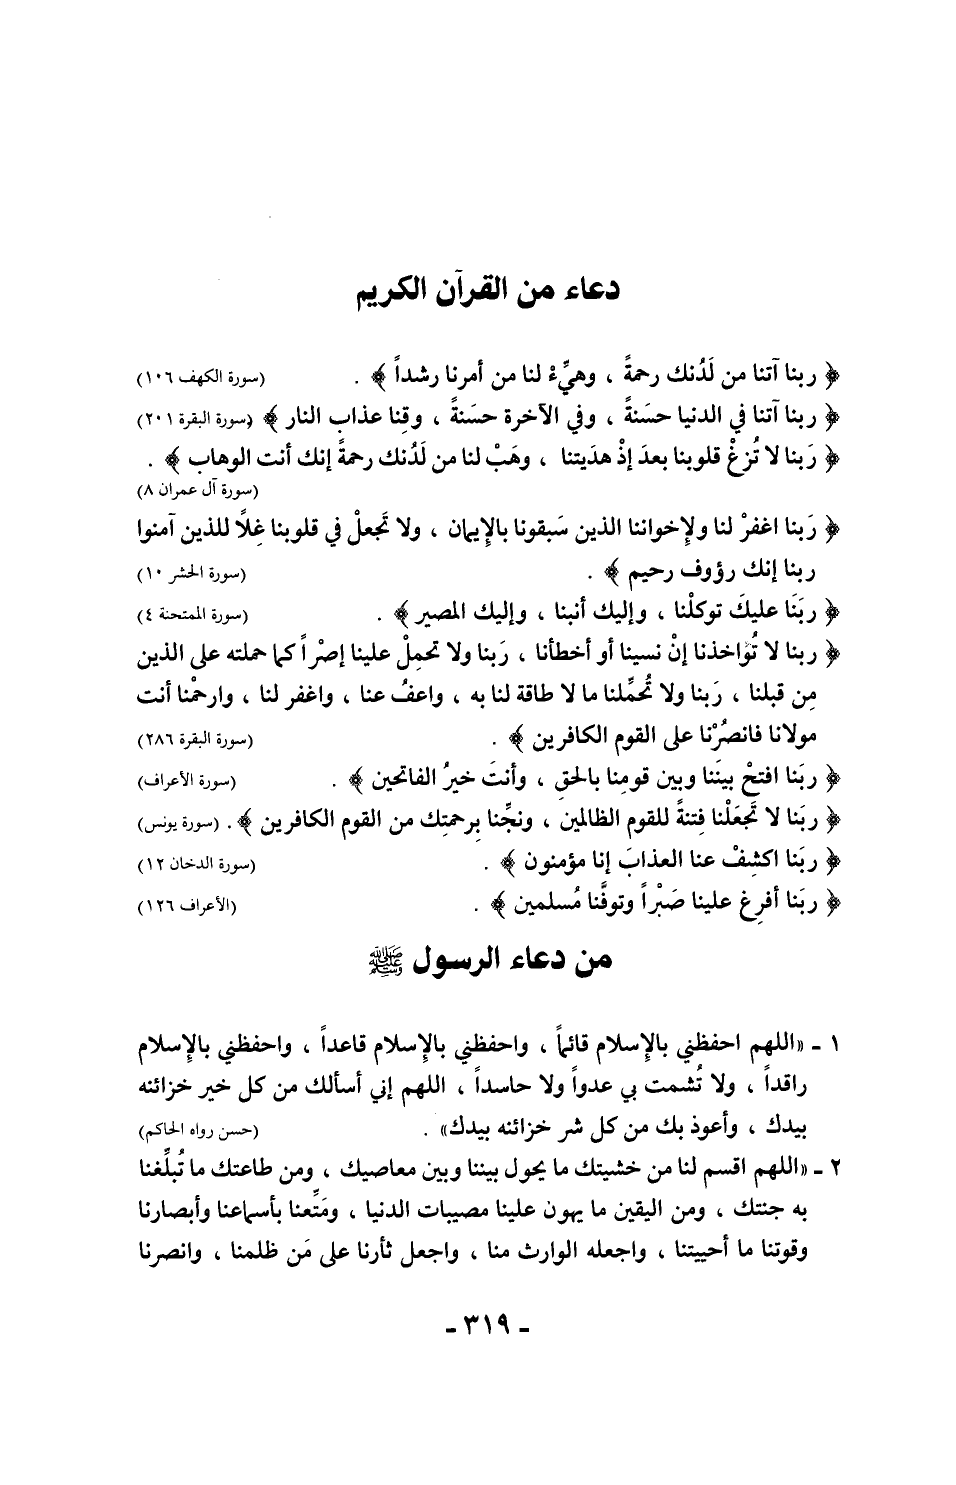 دعاء من القرآن الكريم
﴿ ربنا آتنا من لَدُنك رحمةً ، وهيِّءْ لنا من أمرنا رشداً ﴾ . (سورة الكهف ١٠٦)
﴿ ربنا آتنا في الدنيا حسَنةً ، وفي الآخرة حسَنةً ، وقِنا عذاب النار ﴾ (سورة البقرة ٢٠١)
﴿ رَبنا لا تُزغْ قلوبنا بعدَ إذْ هدَيتنا ، وهَبْ لنا من لَدُنك رحمةً إنك أنت الوهاب ﴾ .
(سورة آل عمران ٨)
﴿ رَبنا اغفرْ لنا ولإخواننا الذين سَبقونا بالإيمان ، ولا تَجعلْ في قلوبنا غِلًا للذين آمنوا
ربنا إنك رؤوف رحيم ﴾ . (سورة الحشر ١٠)
﴿ ربَنا عليكَ توكلْنا ، وإليك أنبنا ، وإليك المصير ﴾ . (سورة الممتحنة ٤)
﴿ ربنا لا تُؤاخذنا إنْ نسينا أو أخطأنا ، رَبنا ولا تحمِلْ علينا إصْراً كما حملته على الذين
مِن قبلنا ، رَبنا ولا تُحمِّلنا ما لا طاقة لنا به ، واعفُ عنا ، واغفر لنا ، وارحمْنا أنت
مولانا فانصُرْنا على القوم الكافرين ﴾ . (سورة البقرة ٢٨٦)
﴿ ربَنا افتحْ بينَنا وبين قومِنا بالحقِ ، وأنتَ خيرُ الفاتحين ﴾ . (سورة الأعراف)
﴿ ربَنا لا تَجعَلْنا فِتنةً للقوم الظالمين ، ونجِّنا بِرحمتِك من القوم الكافرين ﴾ . (سورة يونس)
﴿ ربَنا اكشِفْ عنا العذابَ إنا مؤمنون ﴾ . (سورة الدخان ١٢)
﴿ ربَنا أفرِغ علينا صَبْراً وتوفَّنا مُسلمين ﴾ . (الأعراف ١٢٦)
من دعاء الرسول ﷺ
١ ـ «اللهم احفظني بالإسلام قائماً ، واحفظني بالإسلام قاعداً ، واحفظني بالإسلام
راقداً ، ولا تُشمت بي عدواً ولا حاسداً ، اللهم إني أسألك من كل خير خزائنه
بيدك ، وأعوذ بك من كل شر خزائنه بيدك» . (حسن رواه الحاكم)
٢ ـ «اللهم اقسم لنا من خشيتك ما يحول بيننا وبين معاصيك ، ومن طاعتك ما تُبلِّغنا
به جنتك ، ومن اليقين ما يهون علينا مصيبات الدنيا ، ومَتِّعنا بأسماعنا وأبصارنا
وقوتنا ما أحييتنا ، واجعله الوارث منا ، واجعل ثأرنا على مَن ظلمنا ، وانصرنا
- ٣١٩ -